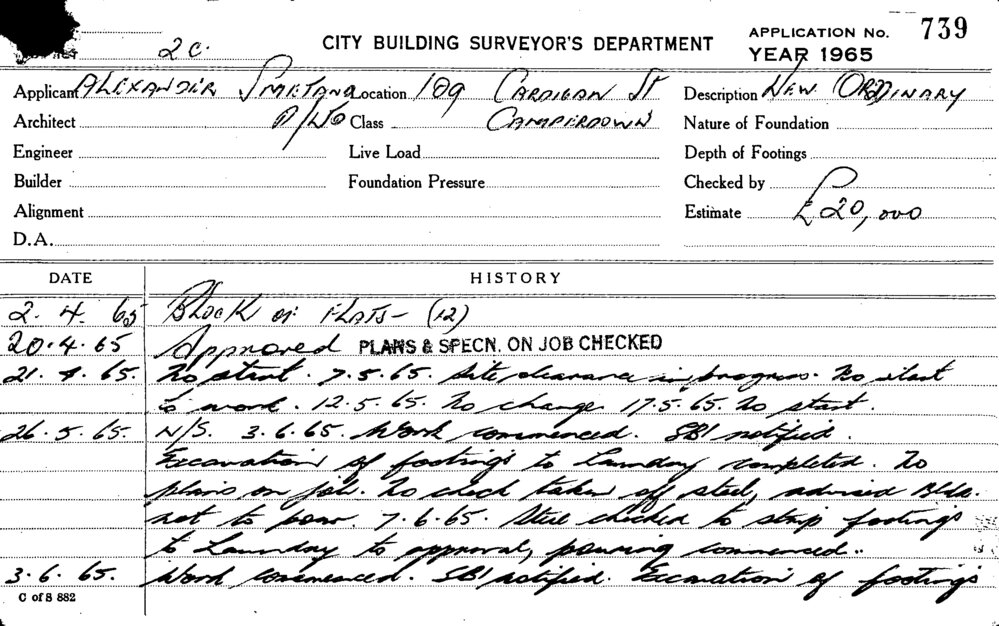 2C. CITY BUILDING SURVEYOR'S DEPARTMENT APPLICATION No. 739
YEAR 1965
Applicant ALEXANDER SMETANA Location 109 CARDIGAN ST Description NEW ORDINARY
Architect O/No Class CAMPERDOWN Nature of Foundation
Engineer Live Load Depth of Footings
Builder Foundation Pressure Checked by
Alignment Estimate £20,000
D.A.
DATE HISTORY
2. 4. 65 BLOCK OF FLATS- (12)
20.4.65 Approved PLANS & SPECN. ON JOB CHECKED
21. 4. 65. No start. 7.5.65. Site clearance in progress. No start
to work. 12.5.65. No change. 17.5.65. No start.
26.5.65. N/S. 3.6.65. Work commenced. SBI notified.
Excavation of footings to Laundry completed. No
plans on job. No check taken of steel, advised Bldr.
not to pour. 7.6.65. Steel checked to strip footings
to Laundry to approval, pouring commenced.
3.6.65. Work commenced. SBI notified. Excavation of footings
C of S 882